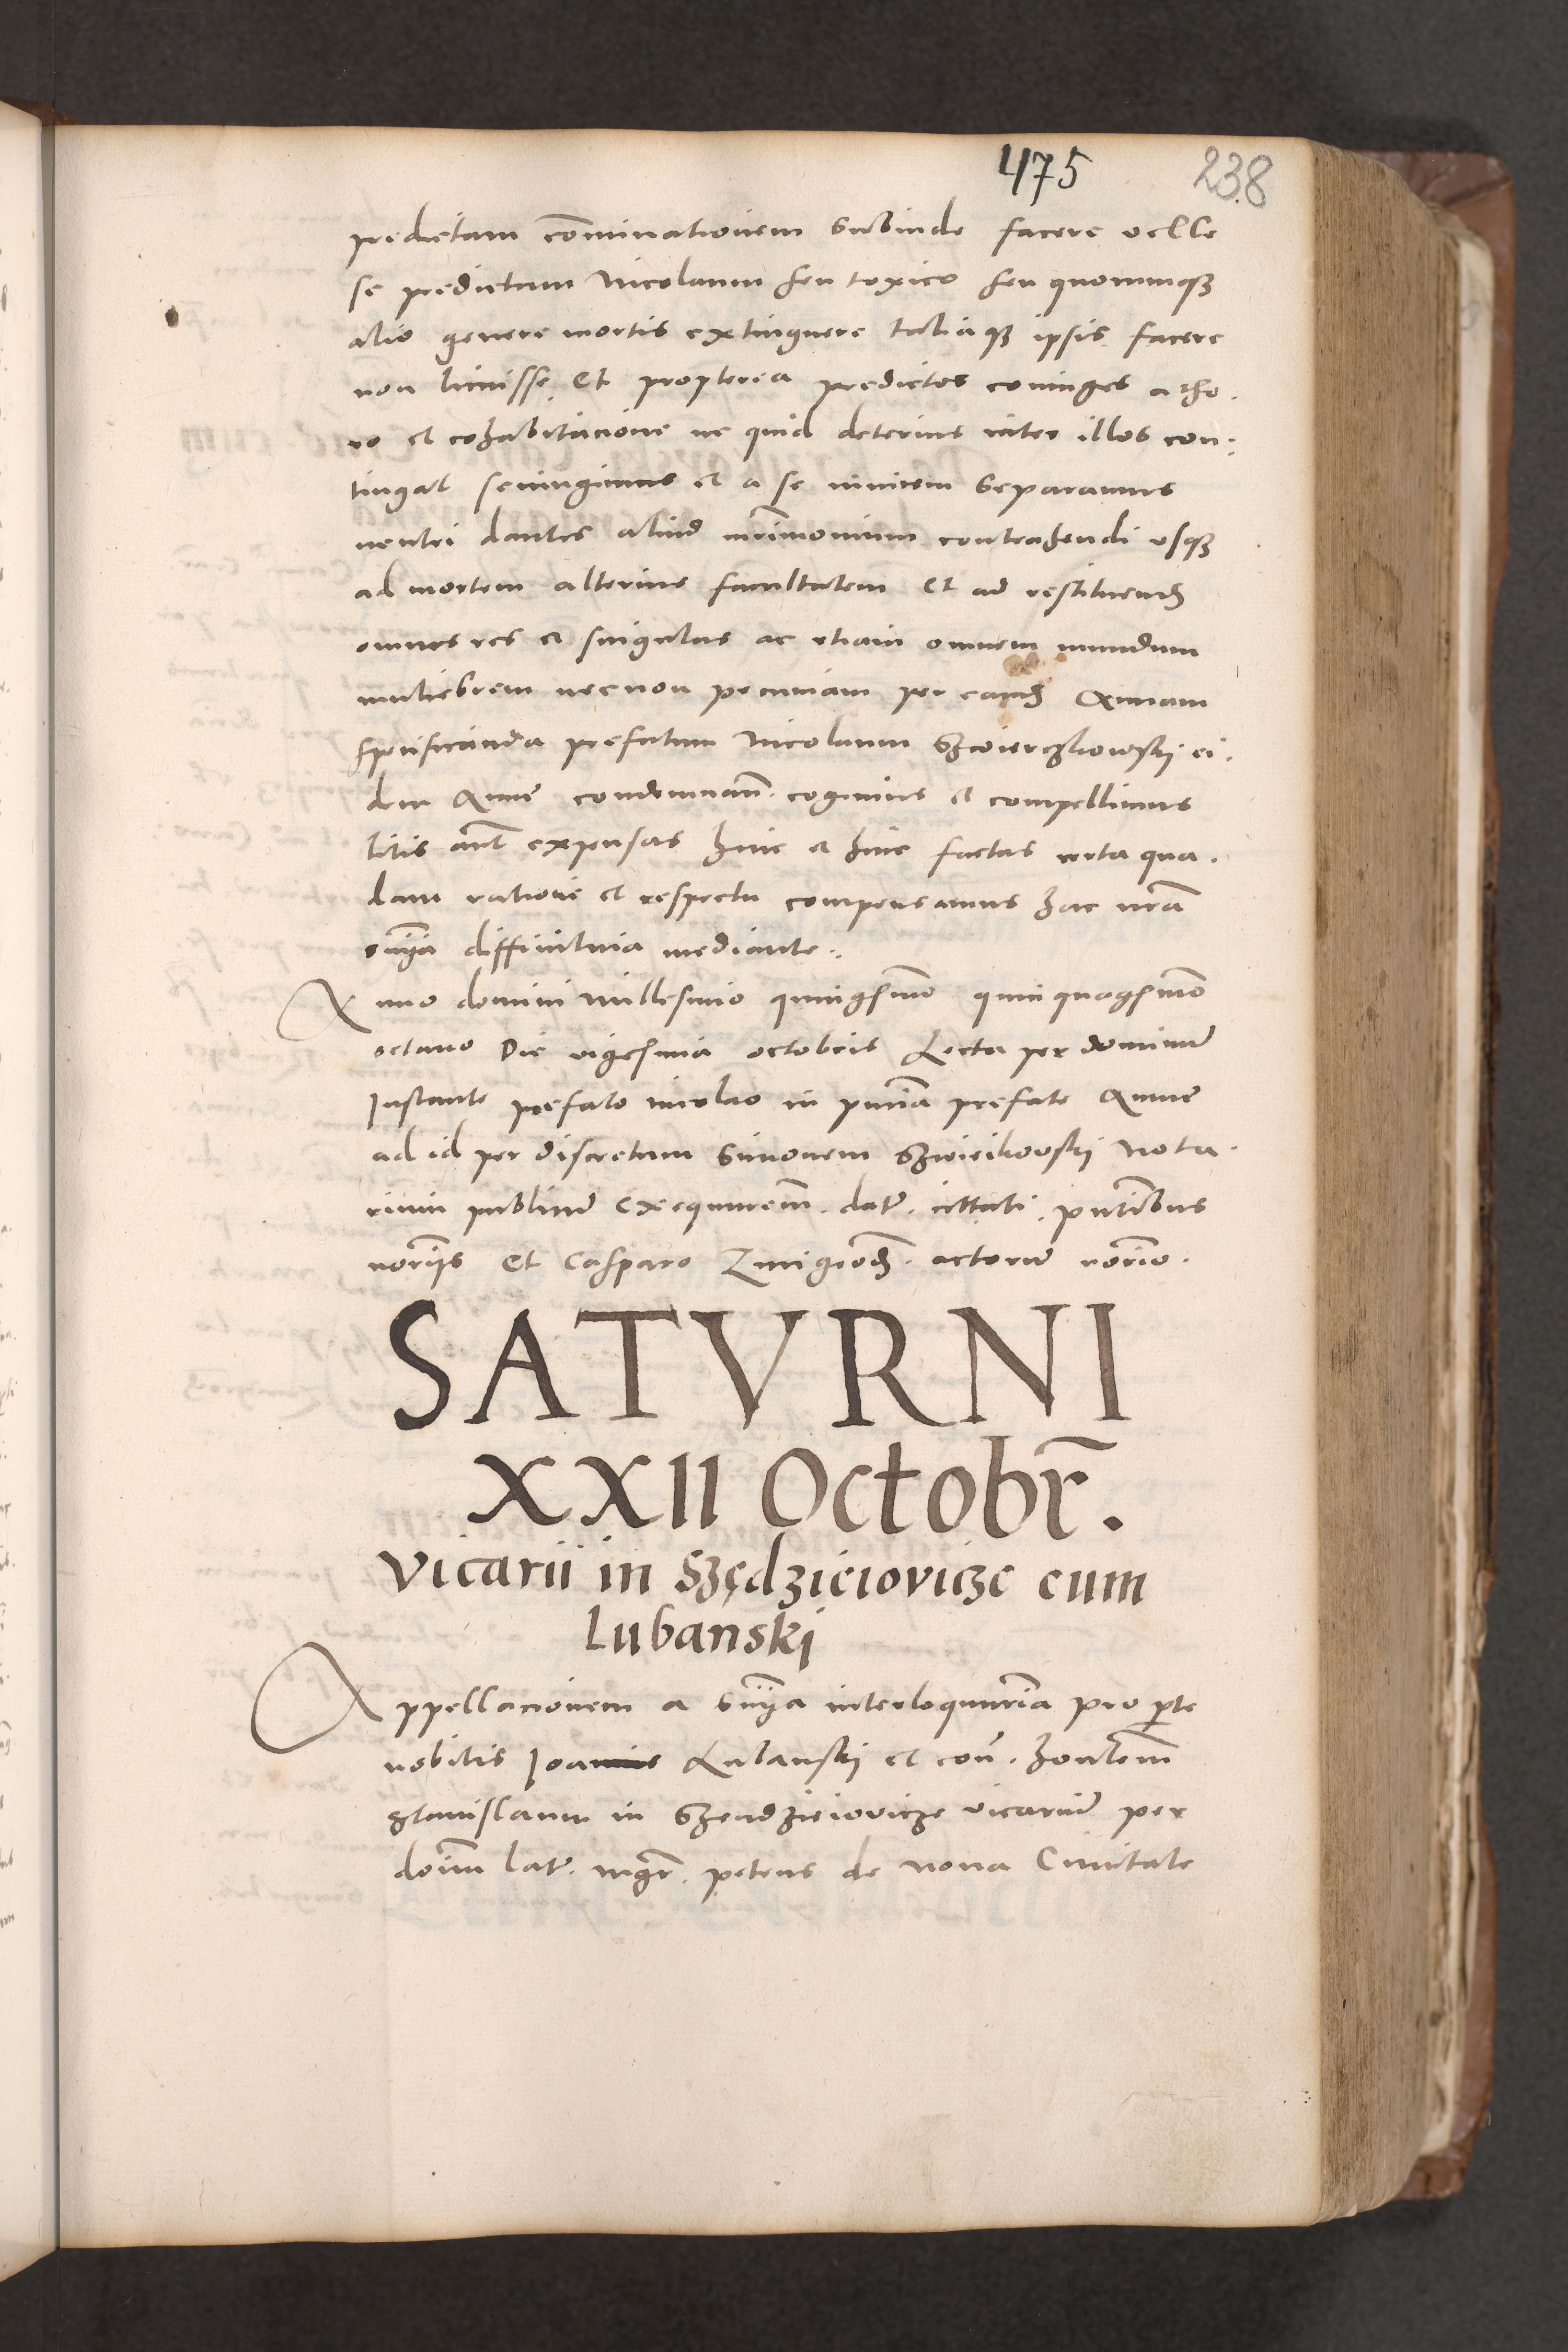 475 238
predictam co͂minationem subinde facere velle
se predictum Nicolaum seu toxico seu quocumqꝫ
alio genere mortis extinguere taliaqꝫ ipsis facere
non licuisse Et propterea predictos coniuges a tho.
ro et cohabitacione ne quid deterius inter illos con:
tingat seiungimus et a se invicem separamus
neutri dantes aliud mr̃imonium contrahendi usqꝫ
ad mortem alterius facultatem Et ad restituendꝫ
omnes res et singulas ac etiam omnem mundum
muliebrem necnon pecuniam per eandꝫ Annam
specificanda prefatum Nicolaum ei.
dem Anne condemnam̃. cogimus et compellimus
litis aũt expensas hinc et hinc factas certa qua.
dam ratione et respectu compensamus hac nr̃a
sñia diffinitiva mediante.
Anno domini Millesimo quingẽsimo quinquagesimo
octavo Die vigesima octobris Lecta per dominum
Instante prefato nicolao in pñtia prefate Anne
ad id per discretum Simonem nota.
rium publicum exequutorem̃. datr̃. cittati. pñtibus
notariis Et Casparo actorum notario.
SATVRNI
XXII Octobr̃.
Vicarii in Szędzieiovicze cum
Lubanski
Appellacionem a sñia interloquutoria pro parte
nobilis Joannis Lubanski et con̄. honlem̃
Stanislaum in Szendzieiovicze vicarium per
dom̃ latr̃. mgr̃. petrus de nova Civitate